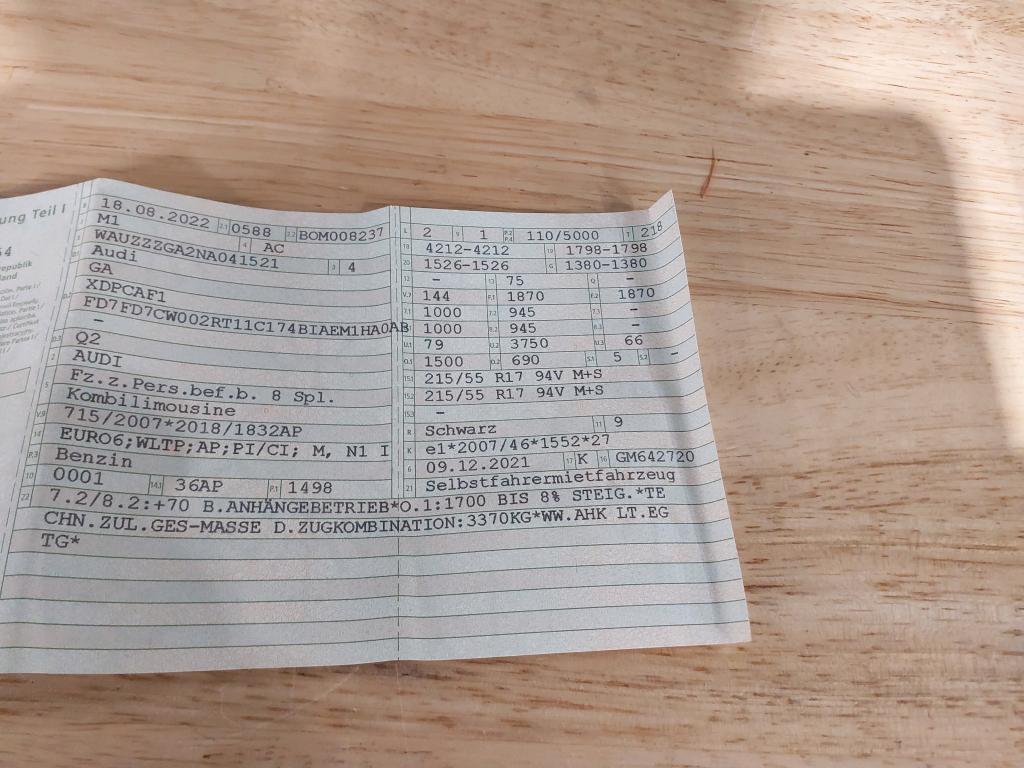 ung Teil I
18.08.2022 0588 BOM008237
M1 AC
WAUZZZGA2NA041521 4
Audi
GA
XDPCAF1
FD7FD7CW002RT11C174BIAEM1HA0AB
–
Q2
AUDI
Fz.z.Pers.bef.b. 8 Spl.
Kombilimousine
715/2007*2018/1832AP
EURO6;WLTP;AP;PI/CI; M, N1 I
Benzin
0001 36AP 1498
2 1 110/5000 218
4212-4212 1798-1798
1526-1526 1380-1380
– 75 –
144 1870 1870
1000 945 –
1000 945 –
79 3750 66
1500 690 5 –
215/55 R17 94V M+S
215/55 R17 94V M+S
–
Schwarz 9
e1*2007/46*1552*27
09.12.2021 K GM642720
Selbstfahrermietfahrzeug
7.2/8.2:+70 B.ANHÄNGEBETRIEB*O.1:1700 BIS 8% STEIG.*TE
CHN.ZUL.GES-MASSE D.ZUGKOMBINATION:3370KG*WW.AHK LT.EG
TG*